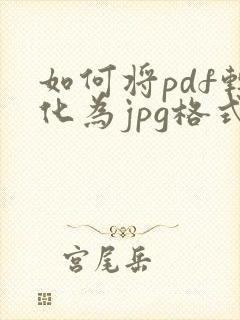 如何将pdf转
化为jpg格式
宫尾岳